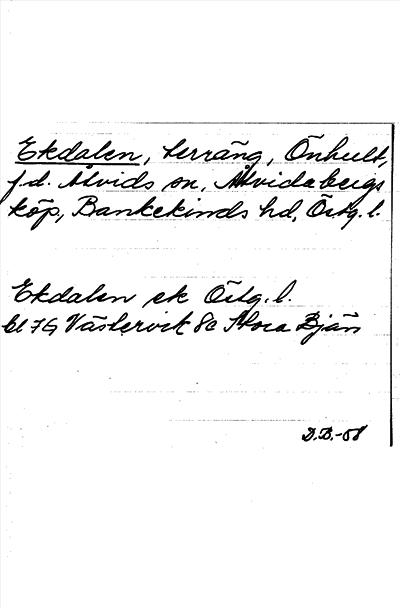 Ekdalen, terräng, Önhult,
f.d. Åtvids sn, Åtvidabergs
köp, Bankekinds hd, Östg. l.
Ekdalen ek Östg. l.
bl 7G Västervik 8c Stora Bjän
D.B.-58